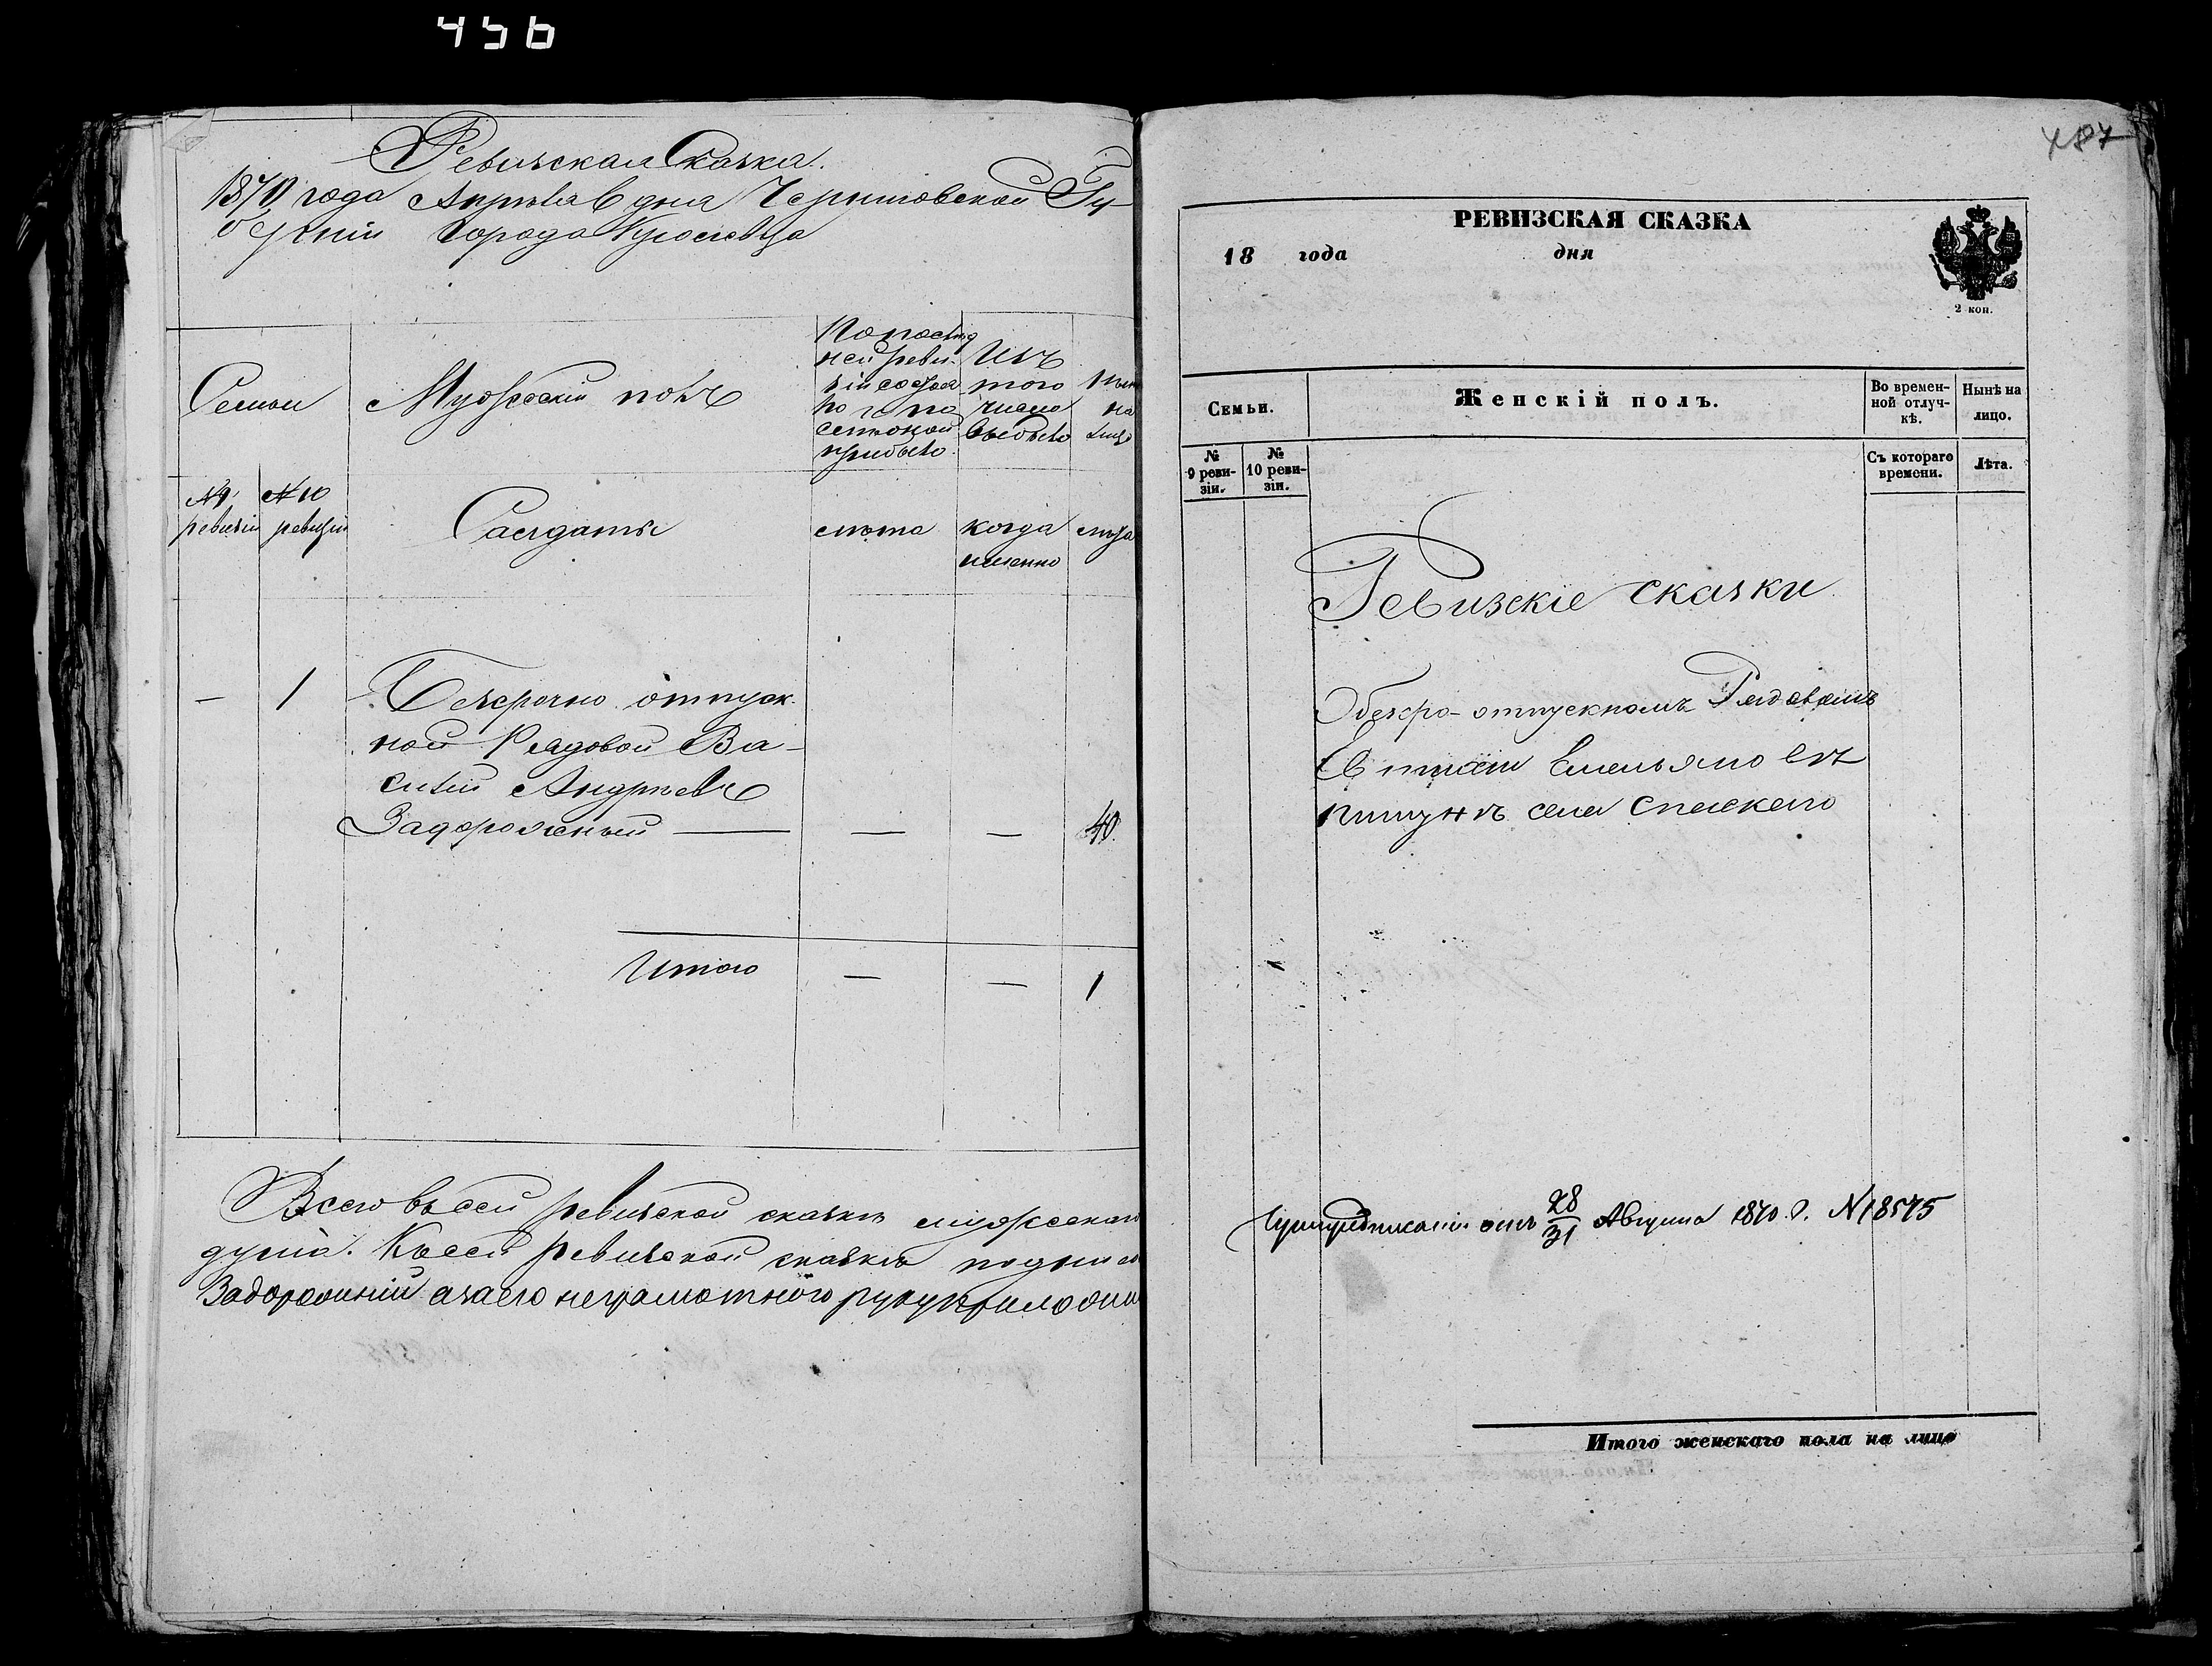 456
Ревизская Сказка.
1870 года Апрѣля 6 дня Черниговской Гу-
берніи города Кролевца
Семьи
Мужескій полъ
По послѣд
ней реви-
зіи состоя
ло и по
оной
прибыло.
Изъ
того
числа
выбыло
на
лицо
№ 9
ревизіи
№ 10
ревизіи
Солдаты
лѣта
когда
именно
лѣта
— 1 Безсрочно отпуск-
ной Рядовой Ва-
силій Андреевъ
Задорожный — — — 40
Итого — — 1
Всего въ сей ревизской сказкѣ мужескаго
душа. Къ сей ревизской сказкѣ
Задорожній а за его неграмотного руку
487
РЕВИЗСКАЯ СКАЗКА
18 года дня
2 коп.
Семьи.
Женскій полъ.
Во времен-
ной отлуч-
кѣ.
Нынѣ на
лицо.
№
9 реви-
зіи.
№
10 реви-
зіи.
Съ котораго
времени.
Лѣта.
Ревизскіе сказки
О безсро-отпускномъ Рядовомъ
Емельяновъ
села Спаскаго
отъ 28/31 Августа 1870 г. № 18575
Итого женскаго пола на лицо